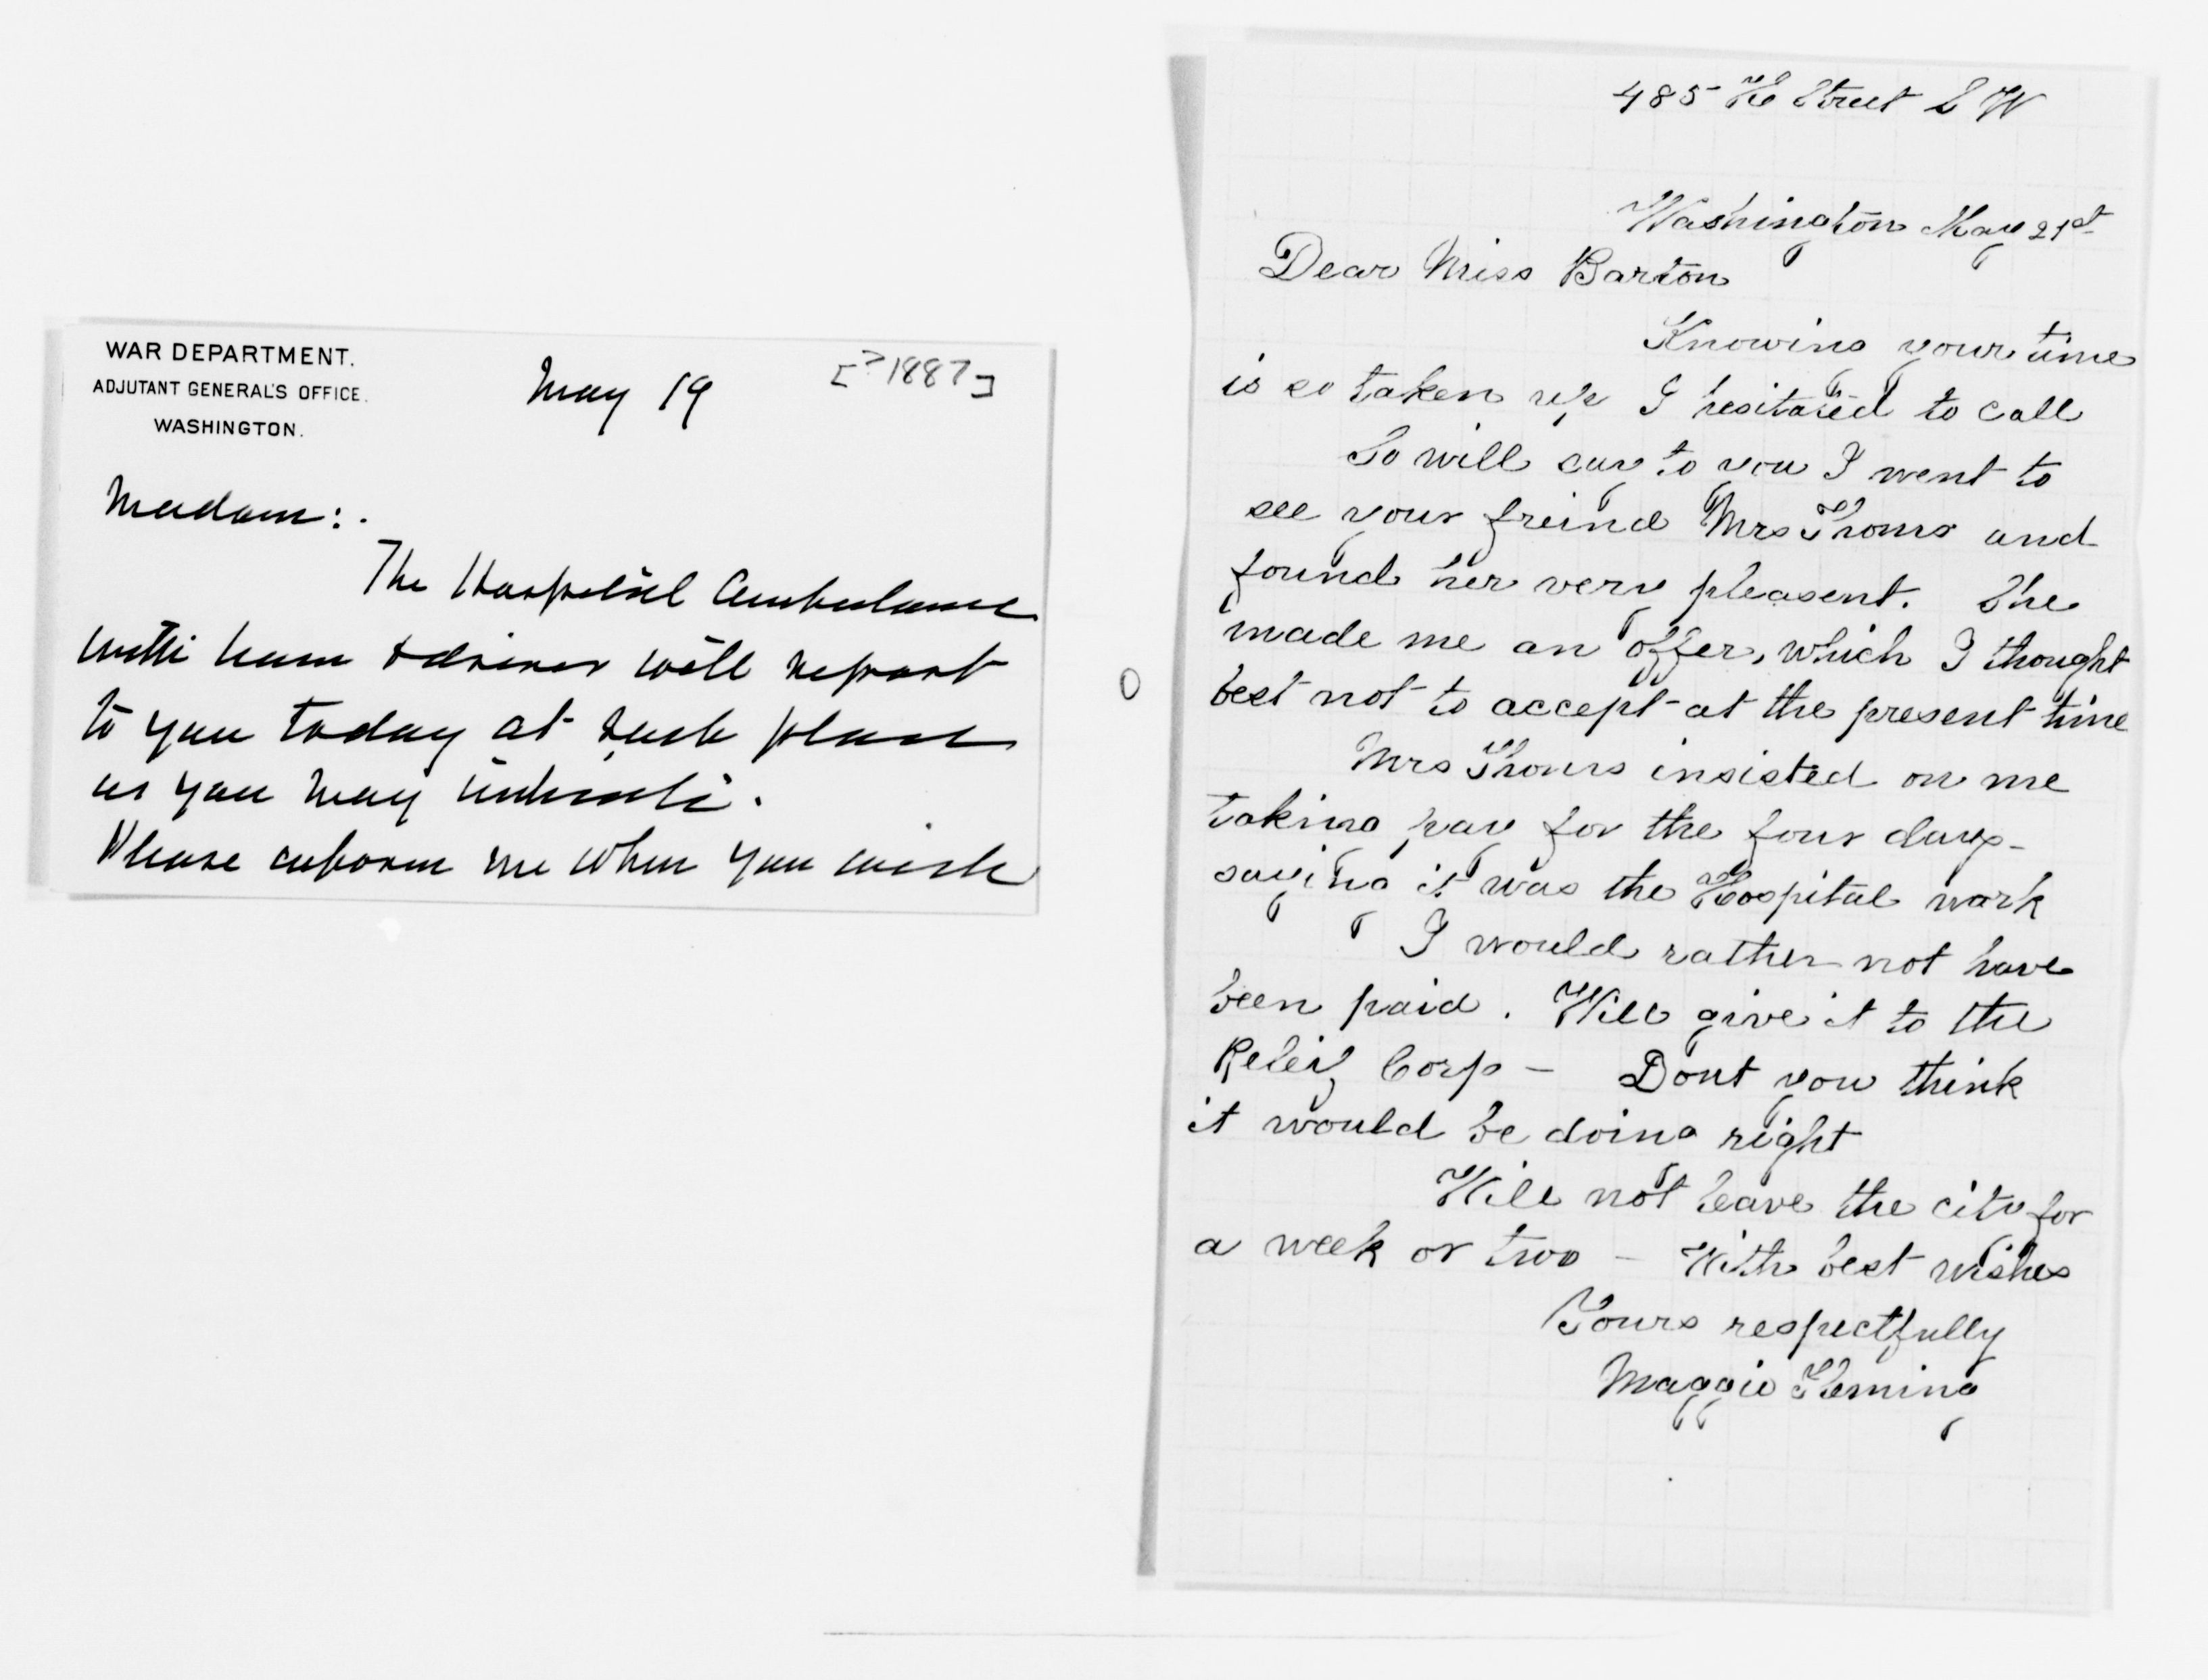 WAR DEPARTMENT.
ADJUTANT GENERAL'S OFFICE.
WASHINGTON.
May 19
[?1887]
Madam:.
The Hospital Ambulance
with team & driver will report
to you today at such place
as you may indicate.
Please inform me when you wish
485 H Street S W
Washington May 21st
Dear Miss Barton
Knowing your time
is so taken up I hesitated to call
So will say to you I went to
see your freind Mrs and
found her very pleasent. She
made me an offer, which I thought
best not to accept at the present time
Mrs insisted on me
taking pay for the four days-
saying it was the Hospital work
I would rather not have
been paid. Will give it to the
Releif Corp - Dont you think
it would be doing right
Will not leave the city for
a week or two - With best wishes
Yours respectfully
Maggie Fleming